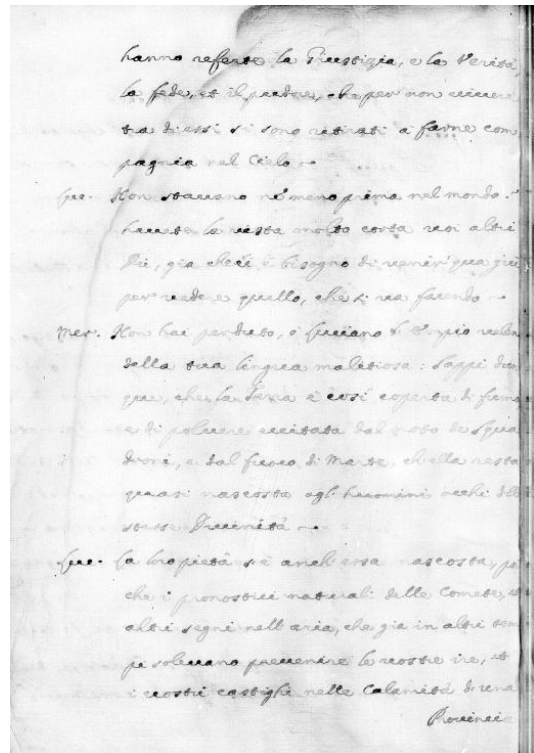 hanno referto la Giustizia, e la Verità,
la fede, et il pudore, che per non vivere
tra di essi si sono ritirati a farne com
pagnia nel Cielo ~
Luc. Non stavano ne meno prima nel mondo.
havete la vista molto corta voi altri
Dei, gia che vi è bisogno di venir qua giù
per vedere quello, che si va facendo ~
Mer. Non hai perduto, o Luciano il
della tua lingua malitiosa: Sappi dun
que, che la Terra è così coperta di fumo
e di polvere eccitata dal moto de Squa
droni, e dal fuoco di Marte, ch'ella resta
quasi nascosta agl'
stesse Divinità ~
Luc. La lor pietà s'è anch'essa nascosta, per
che i pronostici naturali delle Comete, et
altri segni nell'aria, che gia in altri tem
pi solevano prevenire le vostre ire, et
i vostri castighi nelle Calamità di una
Provincia